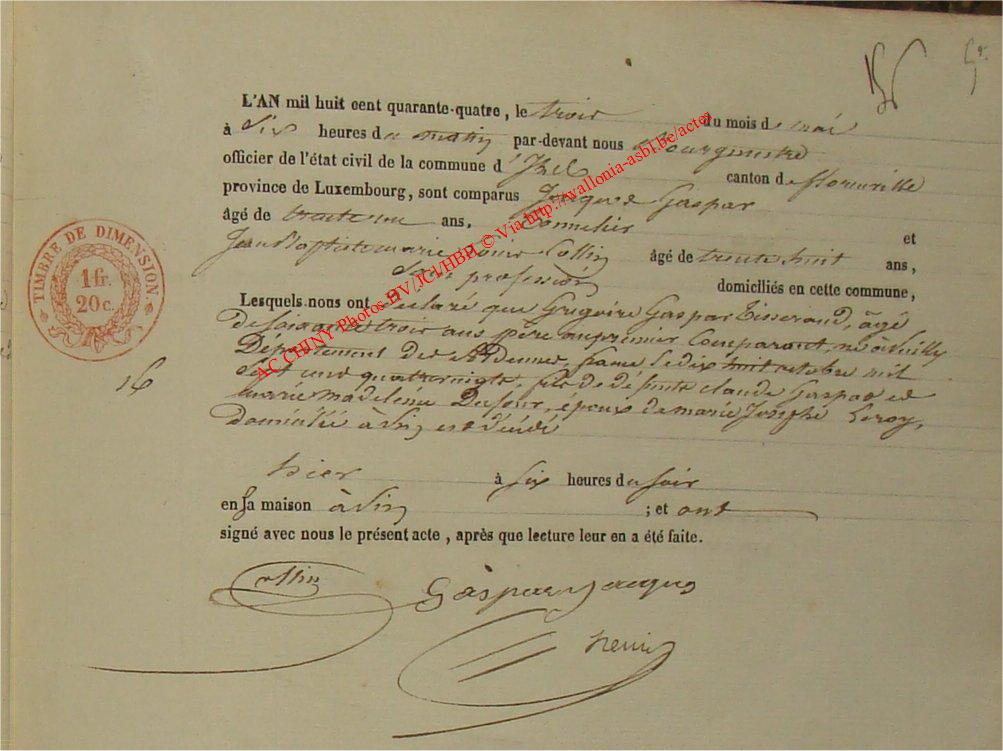 156
L'AN mil huit cent quarante-quatre, le trois du mois de mai
à Six heures du matin par-devant nous Bourgmestre
officier de l'état civil de la commune d'Izel canton de florenville
province de Luxembourg, sont comparus Jacques Gaspar
âgé de trente un ans, Tonnelier et
Jean Baptiste marie Louis Collin âgé de trente huit ans,
Sans profession domiciliés en cette commune,
Lesquels nous ont déclaré que Grégoire Gaspar Tisserand, âgé
de soixante trois ans père au premier Comparant, né à
Département des Ardennes, france le dix huit octobre mil
Sept cent quatre vingts, fils de de funts claude Gaspar et
marie madeleine Dufour, époux de marie Josephe Leroy,
domicilié à est décédé
hier à six heures du soir
en sa maison à ; et ont
signé avec nous le présent acte, après que lecture leur en a été faite.
16
TIMBRE DE DIMENSION.
1 fr.
20 c.
Collin Gaspar Jacques
AC CHINY Photos DV/JCL/HBH © Via http://wallonia-asbl.be/actes